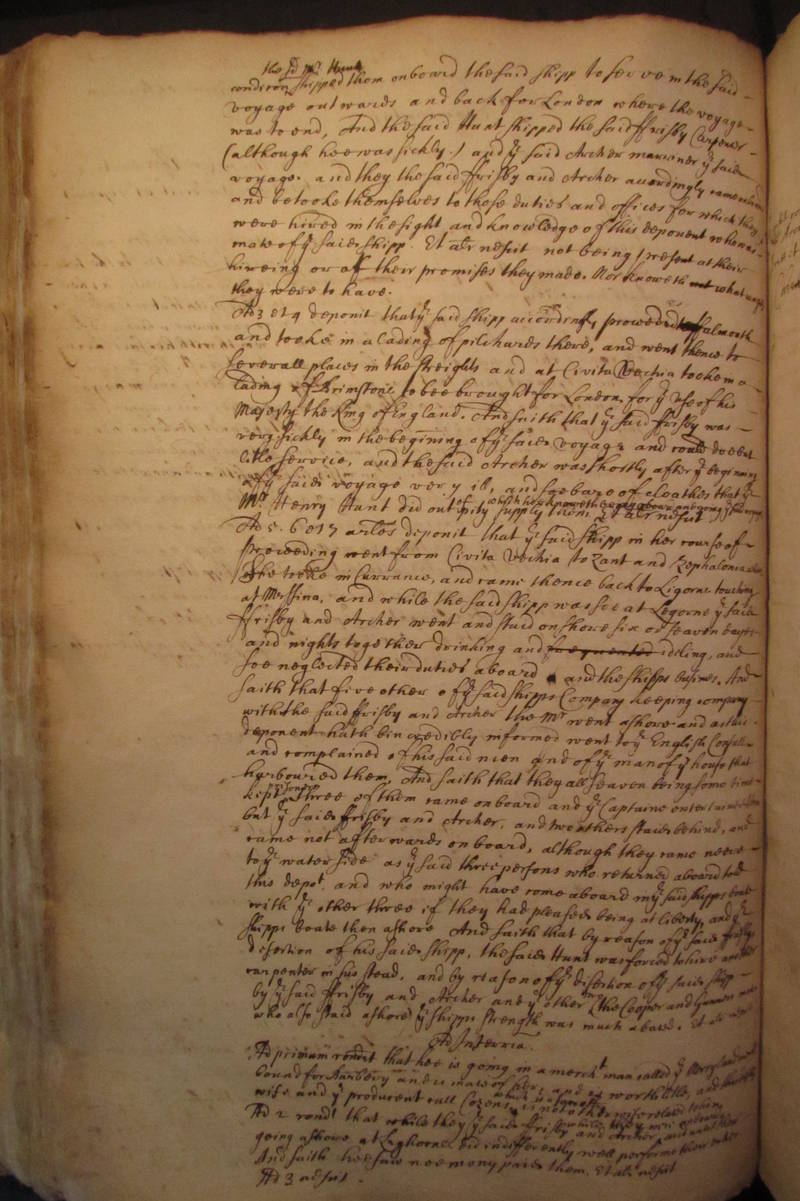 the sd mr Hunt
condicon shipped them onboard the said shipp to serve in the said
voyage outwards and back for London where the voyage
was to end, And the said Hunt shipped the said ffrisby Carpenter
(although hee was sickly) and ye said Archer marriner ye said
voyage. and they the said ffrisby and Archer accordingly came
and betooke themselves to those duties and offices for which they
were hired in the sight and knowledge of this deponent who was
mate of ye said shipp. Et aliter nescit not being present at their
hireing or att their promises they made. Nor knoweth what wages
they were to have.
Ad 3 et 4 deponit that ye said shipp accordingly proceeded Falmouth
and tooke in a lading of pilchards there, and went thence to
severall places in the streights and at Civita Vechia tooke in a
lading of Brimstone to bee brought for London for ye use of his
Majesty the King of England. And saith that ye said ffrisby was
very sickly in the begining of ye said voyage and could doe but
litle service, and the said Archer was shortly after ye beginning
of ye said voyage very ill, and soe bare of cloathes that ye
Mr Henry Hunt did out of pity supply him Et aliter nescit
Ad 5. 6 et 7 arlos deponit that ye said shipp in her course of
proceeding went from Civita Vechia to Zant and Zephalonia
shee tooke in Currance, and came thence back to Ligorne touching
at Messina, and while the said shipp was soe at Legorne ye said
ffrisby and Archer went and staid on shore six or seaven dayes
and nights together drinking and frequented idling, and
soe neglected their duties aboard and the shipps busines. And
saith that five other of ye said shipps Company keeping company
with the said ffrisby and Archer the Mr went ashore and as this
deponent hath bin credibly informed went to ye English Consull
and complained of his said men and of ye man of ye house that
harboured them, And saith that they all seaven being some time
kept three of them came onboard and ye Captaine entertained them
but ye said ffrisby and Archer, and two others staied behind, and
came not afterwards on board, although they came neere
to ye water side as ye said three persons who returned aboard told
this depot. and who might have come aboard in ye said shipps boate
with ye other three if they had pleased being at liberty, and ye
shipps boate then ashore And saith that by reason of ye said ffrisbys
desertion of his said shipp, the said Hunt was forced to hire another
carpenter in his stead, and by reason of ye desertion of ye said shipp
by ye said ffrisby and Archer and ye other the Cooper and Gunners mate
who also staid ashore ye shipps strength was much abated. Et aliter nescit
Ad Interria.
Ad primum rondit that hee is going in a mercht man called ye
bound for Barbery and is mate of her, and is worth litle, and the
wife and ye producent call Cozens is not other wise related to him
Ad 2 rondt that while they ye said ffrisby and Archer
going ashore at Leghorne did indifferently well performe their
And saith hee saw noe mony paid them. Et aliter nescit
Ad 3 nescit.